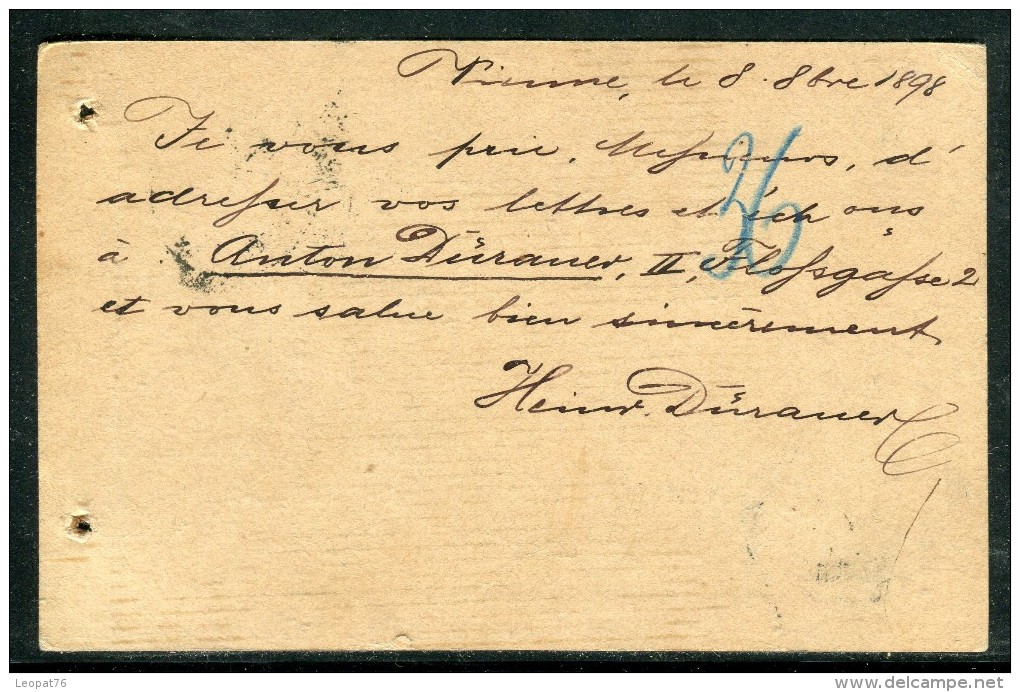 Vienne, le 8. 8bre 1898
Je vous prie, Messieurs, d'
adresser vos lettres et éch ons
à Anton Dürauer, II, Flossgasse 2
et vous salue bien sincèrement
Heinr. Dürauer
36
Leopat76
delcampe.net